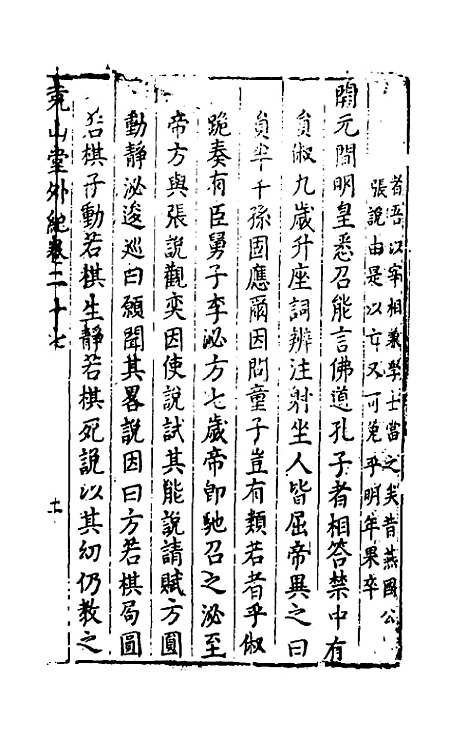 者吾以宰相兼學士當之矣昔燕國公
張說由是以亡又可免乎明年果卒
開元間明皇悉召能言佛道孔子者相答禁中有
貟俶九歲升座詞辨注射坐人皆屈帝異之曰
貟半千孫固應爾因問童子豈有類若者乎俶
跪奏有臣舅子李泌方七歲帝卽馳召之泌至
帝方與張說觀奕因使說試其能說請賦方圓
動靜泌逡巡曰願聞其畧說因曰方若棋局圓
若棋子動若棋生靜若棋死說以其幼仍教之
堯山堂外紀卷二十七
十